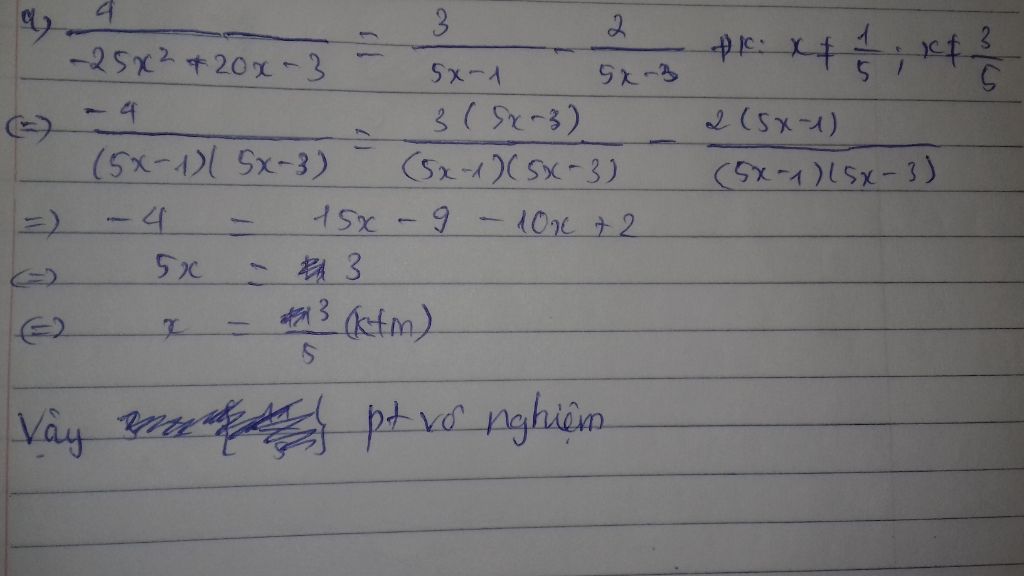 a) 4/(-25x² + 20x - 3) = 3/(5x-1) - 2/(5x-3) đk: x ≠ 1/5 ; x ≠ 3/5
(=) -4/((5x-1)(5x-3)) = 3(5x-3)/((5x-1)(5x-3)) - 2(5x-1)/((5x-1)(5x-3))
=) -4 = 15x - 9 - 10x + 2
(=) 5x = 3
(=) x = 3/5 (ktm)
Vậy pt vô nghiệm